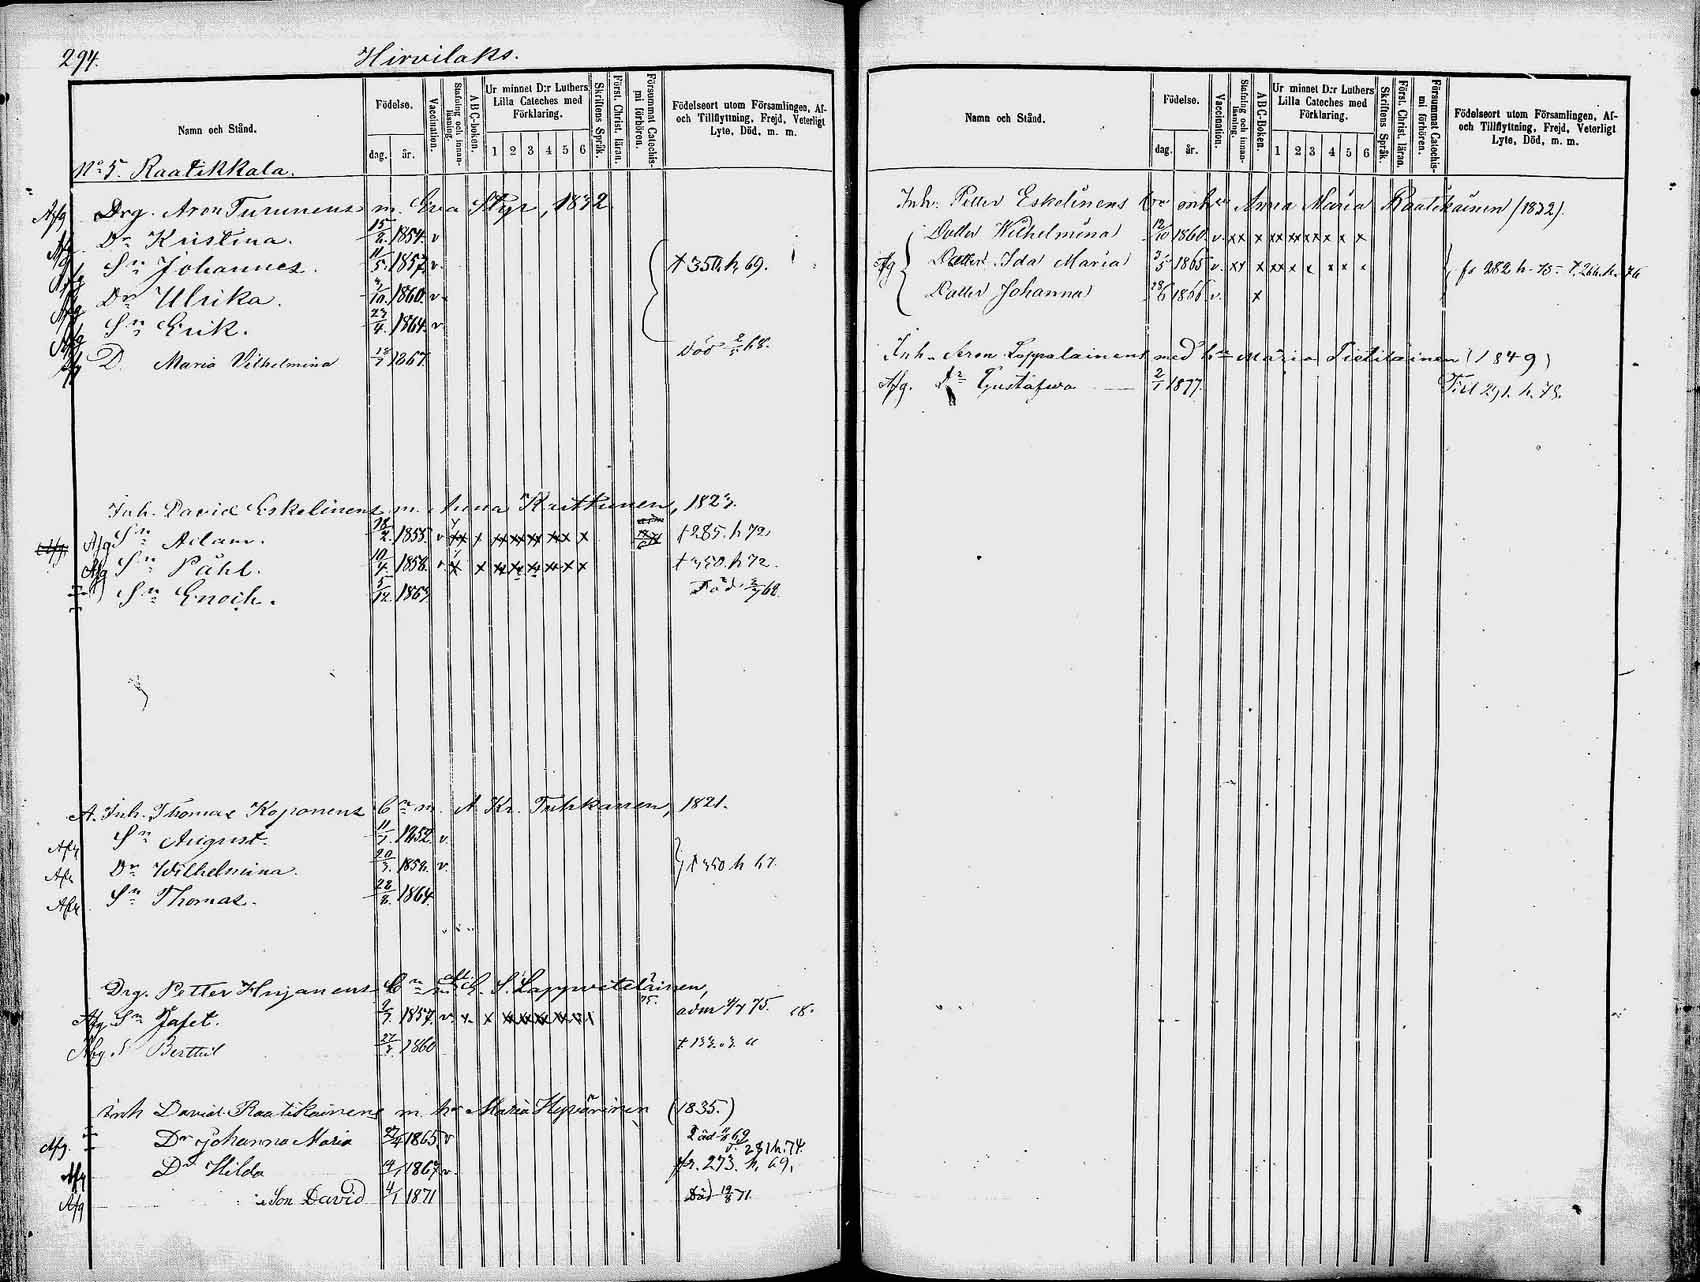 294.
Hirvilaks.
Namn och Stånd.
Födelse.
dag. år.
Vaccination.
Stafning och innanläsning.
ABC-boken.
Ur minnet D:r Luthers Lilla Cateches med Förklaring.
1 2 3 4 5 6
Skriftens Språk.
Först. Christ. läran.
Försummat Catechismi förhören.
Födelseort utom Församlingen, Af- och Tillflyttning, Frejd, Veterligt Lyte, Död, m. m.
No 5. Raatikkala.
Afg Drg. Aron Turunens m. Eva Styr, 1832
Afg Dr Kristina. 15/2. 1854. v
Afg Sn Johannes. 11/5. 1857. v. † 350, h, 69.
Afg Dr Ulrika. /10. 1860. v
Afg Sn Erik. 23/4. 1864. v
Afg D. Maria Vilhelmina 18/7 1867. Död 68.
Inh. David Eskelinens m. Anna Kuttunen, 1823.
Afg Sn Adam. 18/2. 1855. v x x x x x x x x † 285. h 72.
Afg Sn Påhl. 10/4. 1858. v. x x x x x x x x † 350. h 72.
Sn Enoch. 5/12. 1863. Död 68.
A. Inh. Thomas Koponens Cn m. A Kr. Tuhkanen, 1821.
Afg Sn August. 11/7. 1852. v.
Afg Dr Wilhelmina. 20/3. 1858. v. † 350 h 67.
Afg Sn Thomas. 22/8. 1864.
Drg. Petter Hujanens Cn m. G. S. Lappveteläinen,
Afg. Sn Jafet. 2/7. 1857. v. x. x x x x x x x adm 4/7 75. 18.
Afg. S Berttil 27/3. 1860
inh David Raatikainens m. hu Maria Hyvärinen (1835.)
Afg. Dr Johanna Maria 27/4 1865. v Död 69
v. 281 h. 74.
Afg Dr Hilda 1867 v fr. 273. h, 69,
Afg Son David 4/1 1871 Död 19/8 71.
Namn och Stånd.
Födelse.
dag. år.
Vaccination.
Stafning och innanläsning.
ABC-Boken.
Ur minnet D:r Luthers Lilla Cateches med Förklaring.
1 2 3 4 5 6
Skriftens Språk.
Först. Christ. läran.
Försummat Catechismi förhören.
Födelseort utom Församlingen, Af- och Tillflyttning, Frejd, Veterligt Lyte, Död, m. m.
Inh. Petter Eskelinens Anna Maria Raatikainen (1832).
Dotter Wilhelmina 12/10 1860. v. x x x x x x x x x
Afg Dotter Ida Maria 1865 v. x x x x x x x x x fr 282 h. 75 - † 266. h. 76
Dotter Johanna 28/6 1866 v. x
Inh. Aron Lappalainens med hu Maria Tietiläinen (1849)
Afg. Dr Gustafva 2/1 1877. Till 291. h. 78.